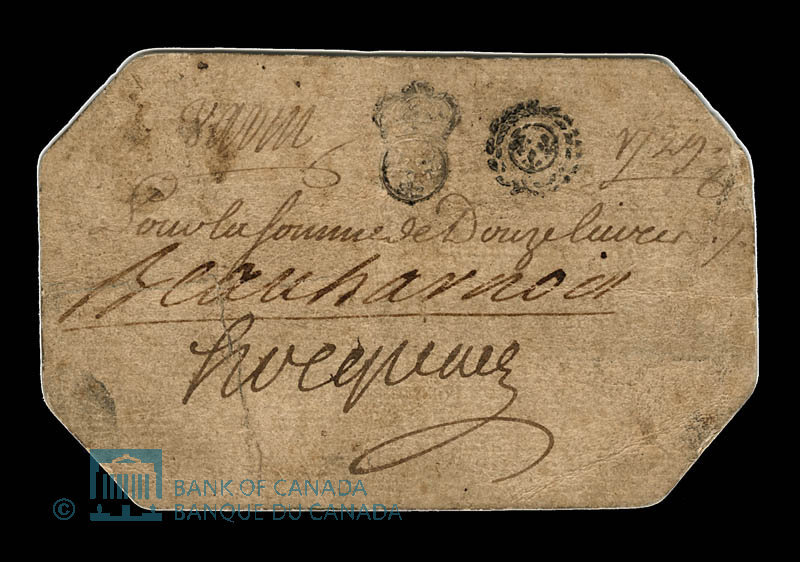 1729
Pour la somme de Douze livres
Beauharnois
hocquart
© BANK OF CANADA
BANQUE DU CANADA